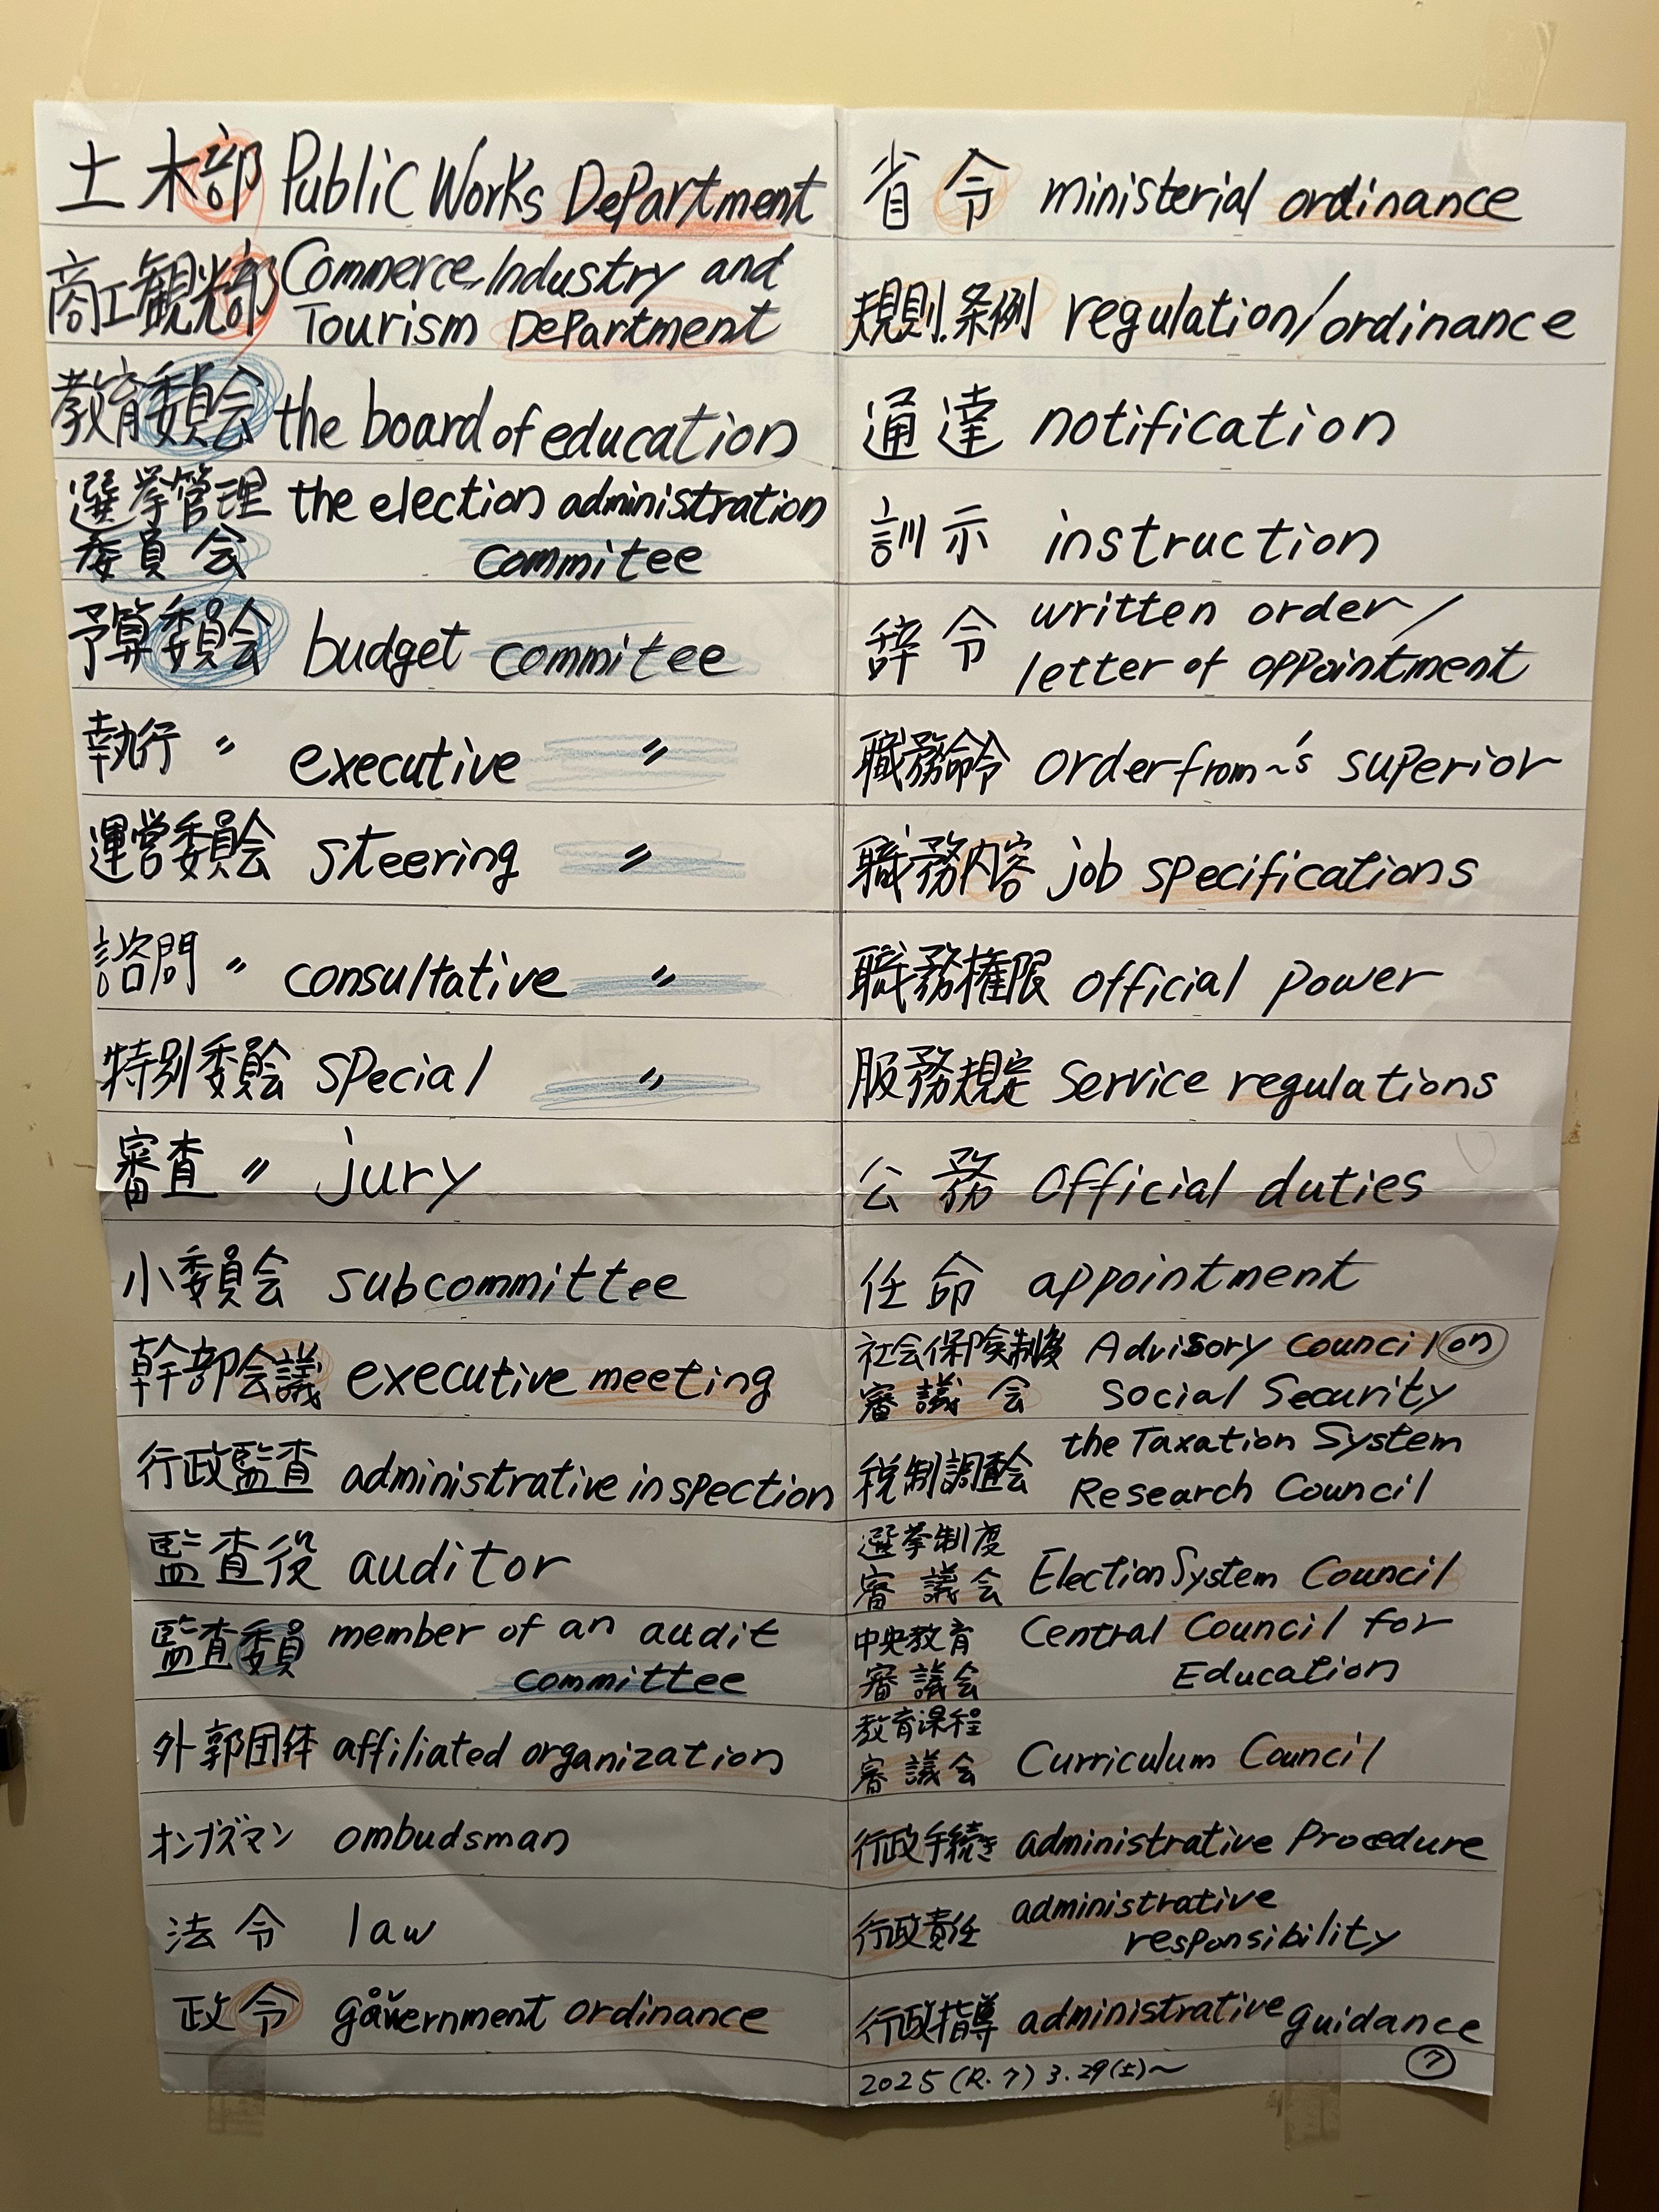 土木部 Public Works Department
商工観光部 Commerce, Industry and
Tourism Department
教育委員会 the board of education
選挙管理 the election administration
委員会 commitee
予算委員会 budget commitee
執行 〃 executive 〃
運営委員会 steering 〃
諮問 〃 consultative 〃
特別委員会 special 〃
審査 〃 jury
小委員会 subcommittee
幹部会議 executive meeting
行政監査 administrative inspection
監査役 auditor
監査委員 member of an audit
committee
外郭団体 affiliated organization
オンブズマン ombudsman
法令 law
政令 government ordinance
省令 ministerial ordinance
規則.条例 regulation/ordinance
通達 notification
訓示 instruction
辞令 written order/
letter of appointment
職務命令 order from ~'s superior
職務内容 job specifications
職務権限 official power
服務規定 service regulations
公務 official duties
任命 appointment
社会保険制度 Advisory council on
審議会 Social Security
税制調査会 the Taxation System
Research Council
選挙制度
審議会 Election System Council
中央教育 Central Council for
審議会 Education
教育課程
審議会 Curriculum Council
行政手続き administrative Procedure
行政責任 administrative
responsibility
行政指導 administrative guidance
2025 (R.7) 3.29(土)~ ⑦